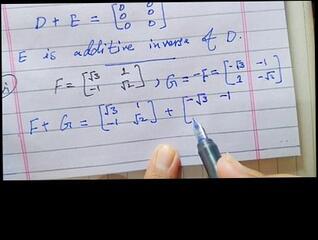 D + E = [0 0
0 0
0 0]
E is additive inverse of D.
F = [√3 1
-1 √2] , G = -F = [-√3 -1
1 -√2]
F + G = [√3 1
-1 √2] + [-√3 -1